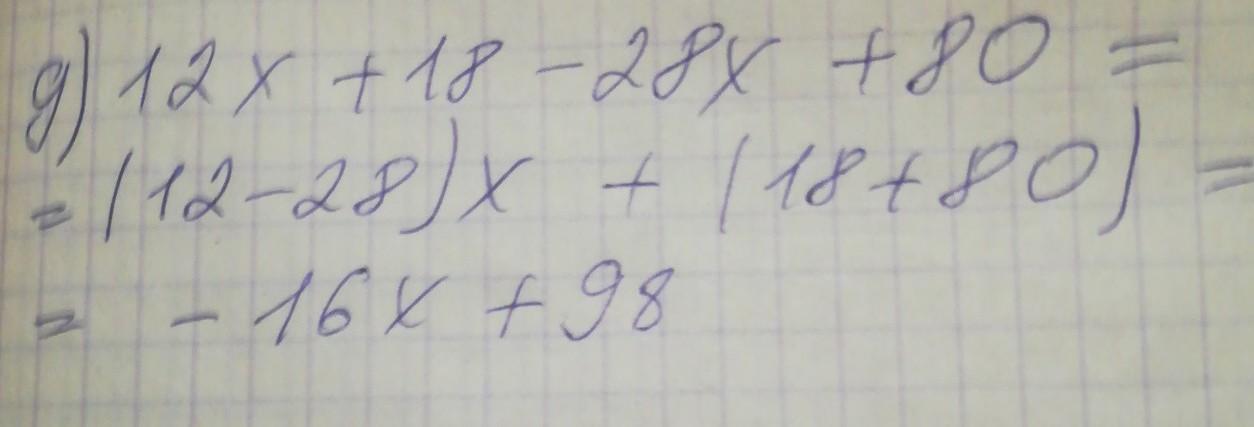 д) 12x + 18 - 28x + 80 =
= (12 - 28)x + (18 + 80) =
= - 16x + 98